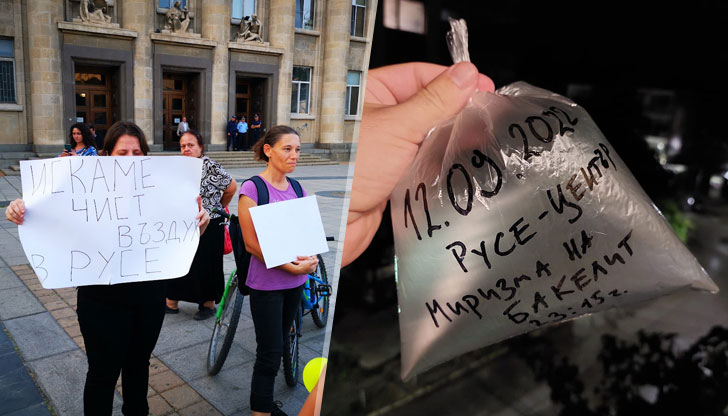 ИСКАМЕ
ЧИСТ
ВЪЗДУ
В РУСЕ
12.09.2022
РУСЕ-ЦЕНТЪР
МИРИЗМА НА
БАКЕЛИТ
23:15г.